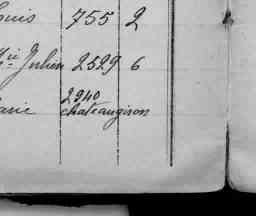 ouis 755 2
Julien 2529 6
arie 2940
chateaugison